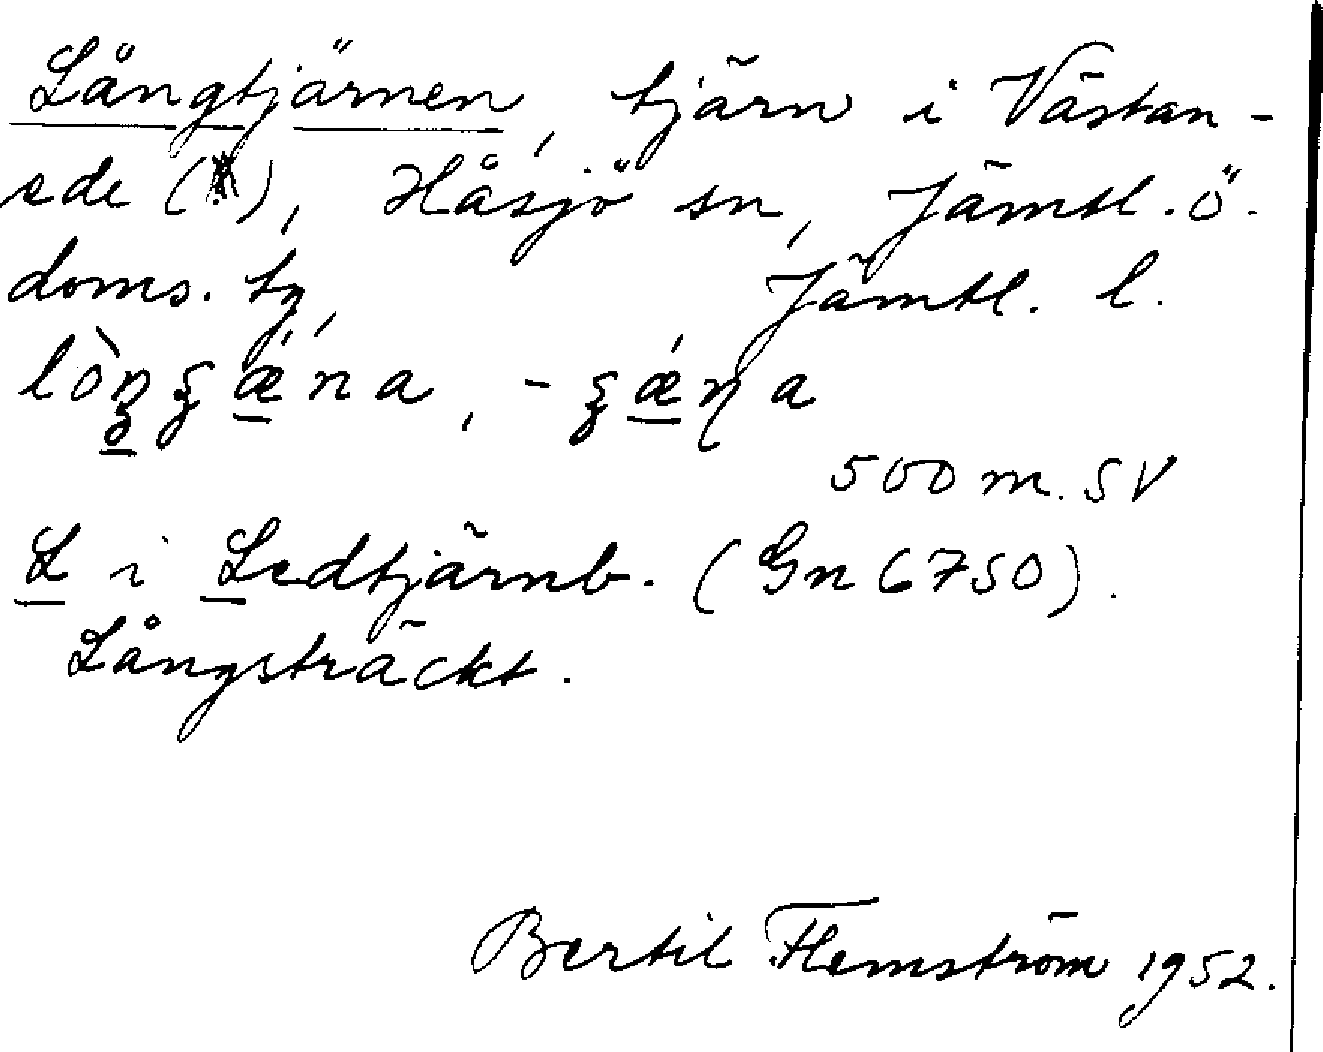 Långtjärnen, tjärn i Västan-
ede (), Håsjö sn, Jämtl. ö.
doms. tg, Jämtl. l.
500 m. SV
L i Ledtjärnb. (Gn 6750).
Långsträckt.
Bertil Flemström 1952.